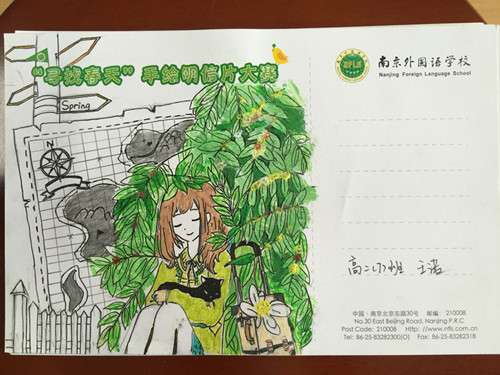 "寻找春天"手绘明信片大赛
Spring
NFLS
南京外国语学校
Nanjing Foreign Language School
王诺
中国·南京北京东路30号 邮编：210008
No.30 East Beijing Road, Nanjing P.R.C
Post Code: 210008 Http: //www.nfls.com.cn
Tel: 86-25-83282300(O) Fax: 86-25-83282318